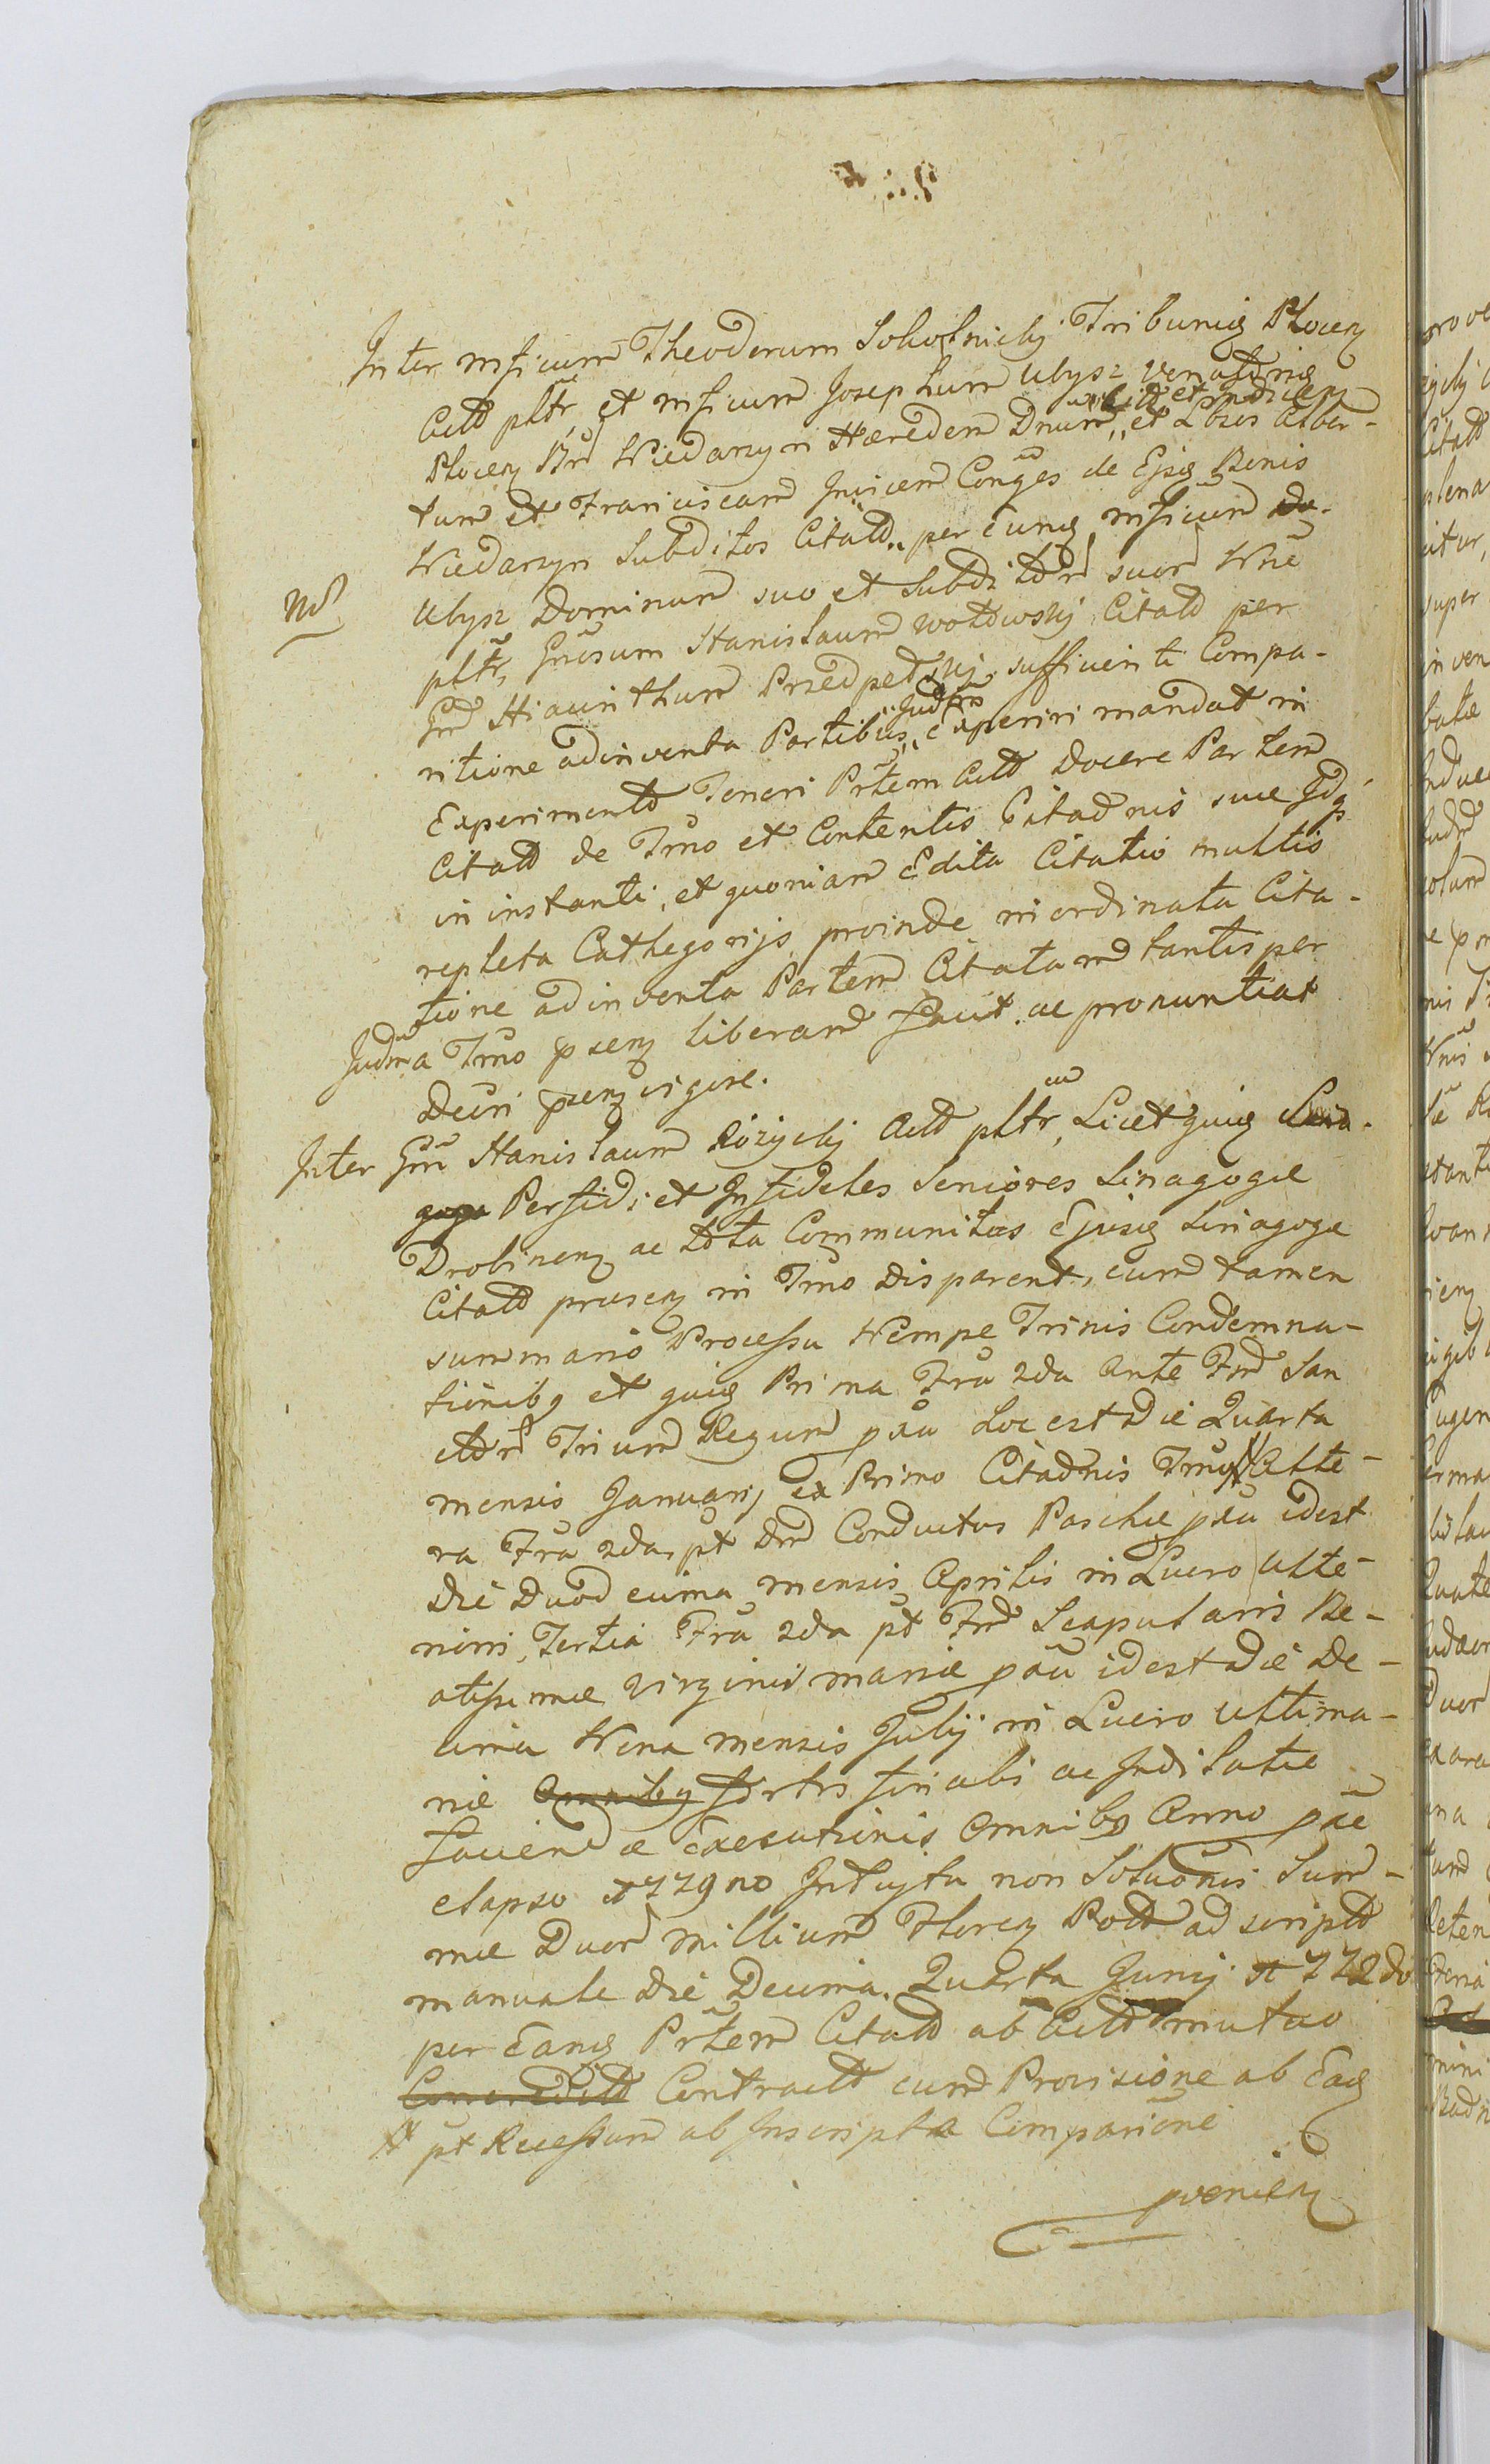 Inter Mficum Theodorum Sokolnicky Tribunig Plocen
Actt pltr, et Mficum Josephum Ulysz Venatorie
ubiq et Judicem
Plocen Bnr Niedarzyn Hæredem Dnum,, et Lbsos Alber-
tum et Franciscam Invicem Conges de Ejsg Bonis
Niedarzyn Subditos Citatt,, per Eung Mficum
Ulysz Dominum suo et Subditor suor Nne
No
pltr, Gnosum Stanislaum Wotowsky Citatt per
Gnd Hiacinthum Przedpelsky sufficienti Compa-
ritione adinventa Partibus,, Experiri mandat in
Experimento Teneri Prtem Actt Docere Partem
Citatt de Tmo et Contentis Citaonis suæ Idq
in instanti, et quoniam Edita Citatio multis
repleta Cathegorijs proinde inordinata Cita-
tione adinventa Partem Citatam tantisper
Judma Tmo psen liberam facit, ac pronuntiat
Decri psen vigore.
Inter Gm Stanislaum Różycky Actt pltr, Licet quig
Perfidi et Infideles Seniores Sinagogæ
Drobinen ac tota Communitas Ejusg Sinagogæ
Citatt præsen in Tmo disparent, cum tamen
summario Processu Nempe Trinis Condemna-
tionibg et quig Prima Fra 2da Ante Fm San
ctor Trium Regum pxa hoc est die Quarta
mensis Januarij ex Primo Citaonis Tmo # Alte-
ra Fra 2da pt Dm Conductus Paschæ pxa idest
die Duodecima mensis Aprilis in Lucro Ulte-
riori, Tertia Fra 2da pt Fm Scapularis Be-
atissimæ Virginis Mariæ pxa idest die De-
cima Nona mensis Julij in Lucro Ultima-
rie Omnibg fortis finalis ac Indilatæ
faciendæ Executionis Omnibg Anno pxe
elapso 1779no Intuytu non Solutionis Sum-
mæ Duor Millium Floren Poll ad script
manuale die Decima Quarta Junij 1772do
per Eang Prtem Citatt ab Actt mutuo
Contractt cum Provisione ab Eag
# pt Recessum ab Inscripta Comparitione
provenien